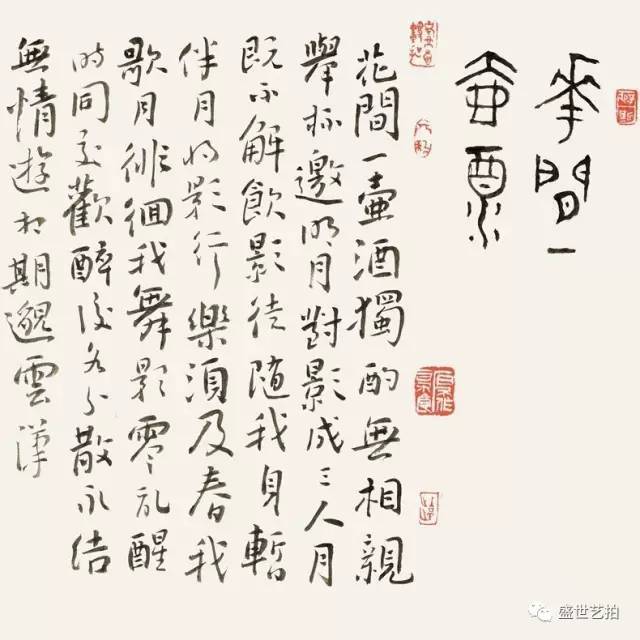 華間一
壺酒
花間一壺酒獨酌無相親
舉杯邀明月對影成三人月
既不解飲影徒隨我身暫
伴月將影行樂須及春我
歌月徘徊我舞影零亂醒
時同交歡醉後各分散永結
無情遊相期邈雲漢
盛世艺拍